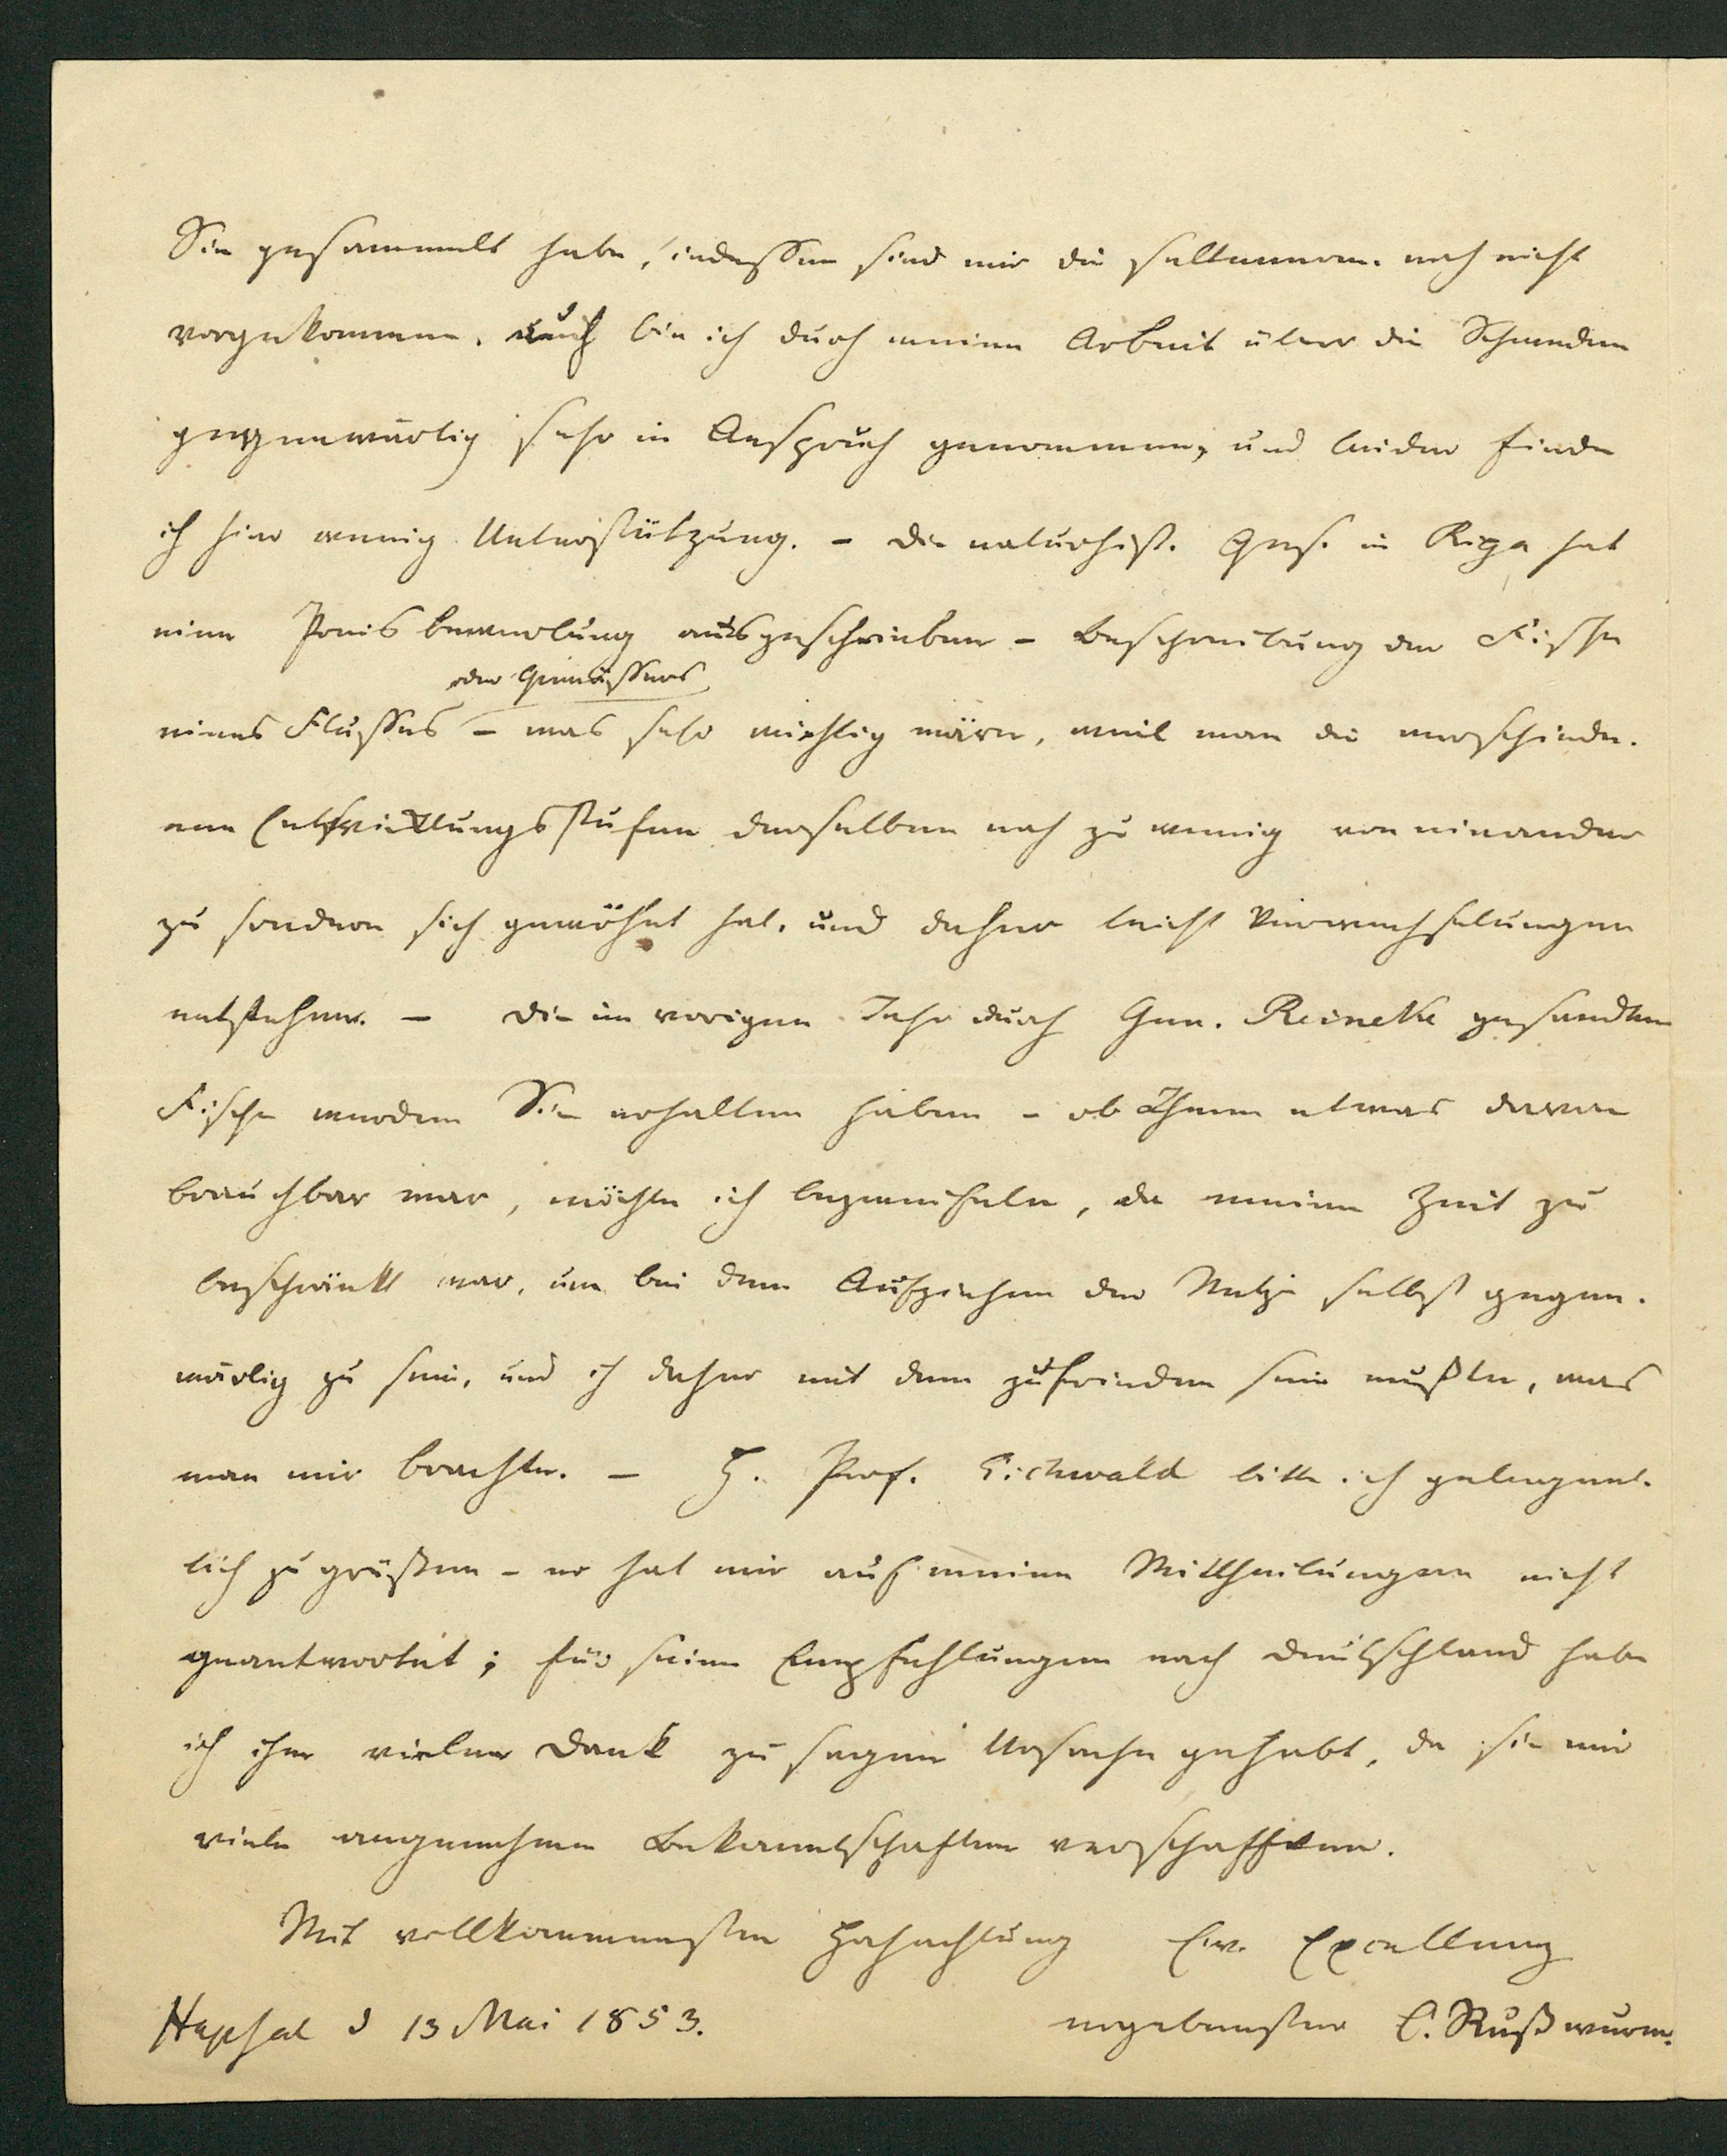 Sie gesammelt habe, indessen sind mir die seltneren noch nicht
vorgekommen. Auch bin ich durch meine Arbeit über die Schweden
gegenwärtig sehr in Anspruch genommen, und leider finde
ich hier wenig Unterstützung. – Die naturhist. Ges. in Riga hat
eine Preisbewerbung ausgeschrieben – Beschreibung der Fische
oder Gewässers
eines Flusses – was sehr wichtig wäre, weil man die verschiede-
nen Entwicklungsstufen derselben noch zu wenig von einander
zu sondern sich gewöhnt hat, und daher leicht Verwechselungen
entstehen. – Die im vorigen Jahr durch Gen. Reineke gesandten
Fische werden Sie erhalten haben – ob Ihnen etwas davon
brauchbar war, möchte ich bezweifeln, da meine Zeit zu
beschränkt war, um bei dem Aufziehen der Netze selbst gegen-
wärtig zu sein, und ich daher mit dem zufrieden sein mußte, was
man mir brachte. – H. Prof. Eichwald bitte ich gelegent-
lich zu grüßen – er hat mir auf meine Mittheilungen nicht
geantwortet; für seine Empfehlungen nach Deutschland habe
ich ihm vielen Dank zu sagen Ursache gehabt, da sie mir
viele angenehme Bekanntschaften verschafften.
Mit vollkommenster Hochachtung Ew. Excellenz
Hapsal d 13 Mai 1853. ergebenster C. Rußwurm.